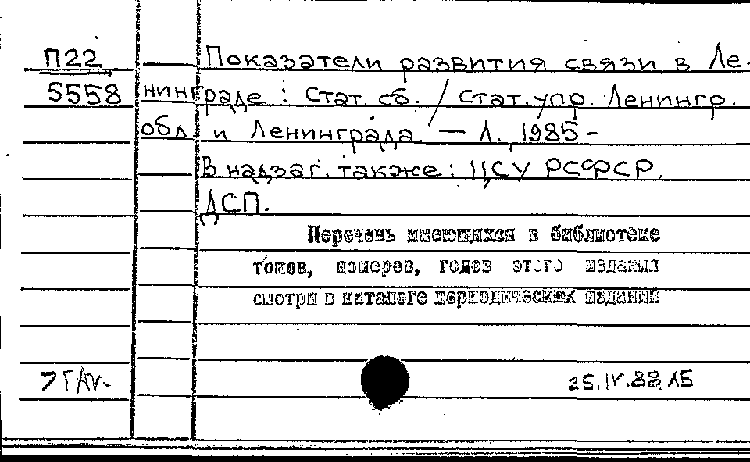 П22 Показатели развития связи в Ле-
5558 нинграде : Стат. сб. / Стат. упр. Ленингр.
обл. и Ленинграда. — Л., 1985 -
В надзаг. также: ЦСУ РСФСР.
ДСП.
Перечень имеющихся в библиотеке
томов, номеров, годов этого издания
смотри в каталоге периодических изданий
25.IV.88 15